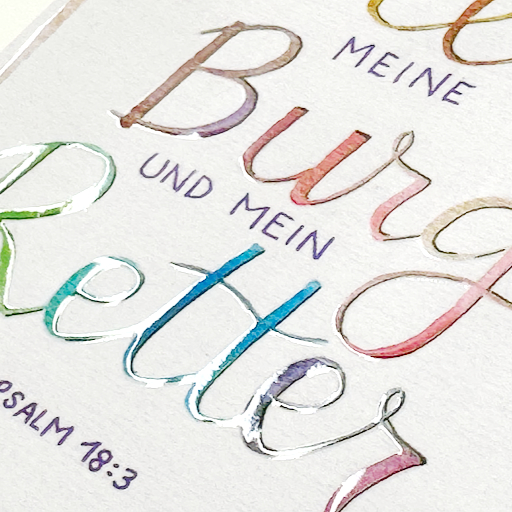 MEINE
Burg
UND MEIN
Retter
PSALM 18:3